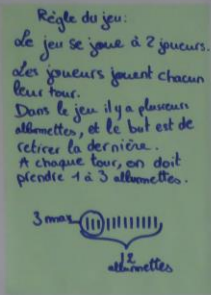 Règle du jeu:
Le jeu se joue à 2 joueurs.
Les joueurs jouent chacun
leur tour.
Dans le jeu il y a plusieurs
allumettes, et le but est de
retirer la dernière.
A chaque tour, on doit
prendre 1 à 3 allumettes.
3 max
12
allumettes